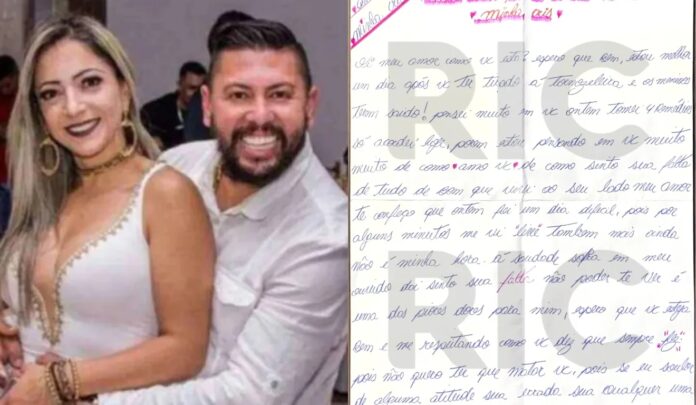 minha
minha
Oi meu amor como vc está? espero que bem, estou melhor
um dia após vc ter tirado a tornozeleira e os meninos
terem saído! pensei muito em vc ontem tomei 4 remédios
só acordei hoje, porém estou pensando em vc muito
muito de como amo vc de como sinto sua falta
de tudo de bom que vivi ao seu lado meu amor
te confeço que ontem foi um dia dificil, pois por
alguns minutos me vi livre tambem mais ainda
não é minha hora a saudade sopra em meu
ouvido dai sinto sua falta não poder te ver é
uma das piores dores para mim, espero que vc esteja
bem e me respeitando como vc diz que sempre fez
pois não quero ter que matar vc, pois se eu souber
de alguma atitude sua errada sua qualquer uma
RIC
RIC